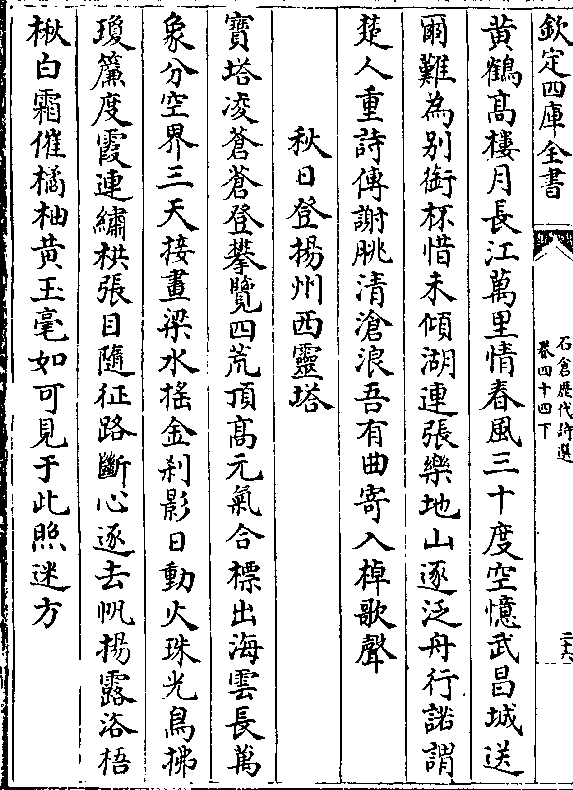 欽定四庫全書
石倉歷代詩選
卷四十四下
二十六
黄鶴髙樓月長江萬里情春風三十度空憶武昌城送
爾難為别銜杯惜未傾湖連張樂地山逐泛舟行諾謂
楚人重詩傳謝朓清滄浪吾有曲寄入棹歌聲
秋日登揚州西靈塔
寳塔凌蒼蒼登攀覽四荒頂髙元氣合標出海雲長萬
象分空界三天接畫梁水搖金刹影日動火珠光鳥拂
瓊簾度霞連繡栱張目隨征路斷心逐去帆揚露洛梧
楸白霜催橘柚黄玉毫如可見于此照迷方